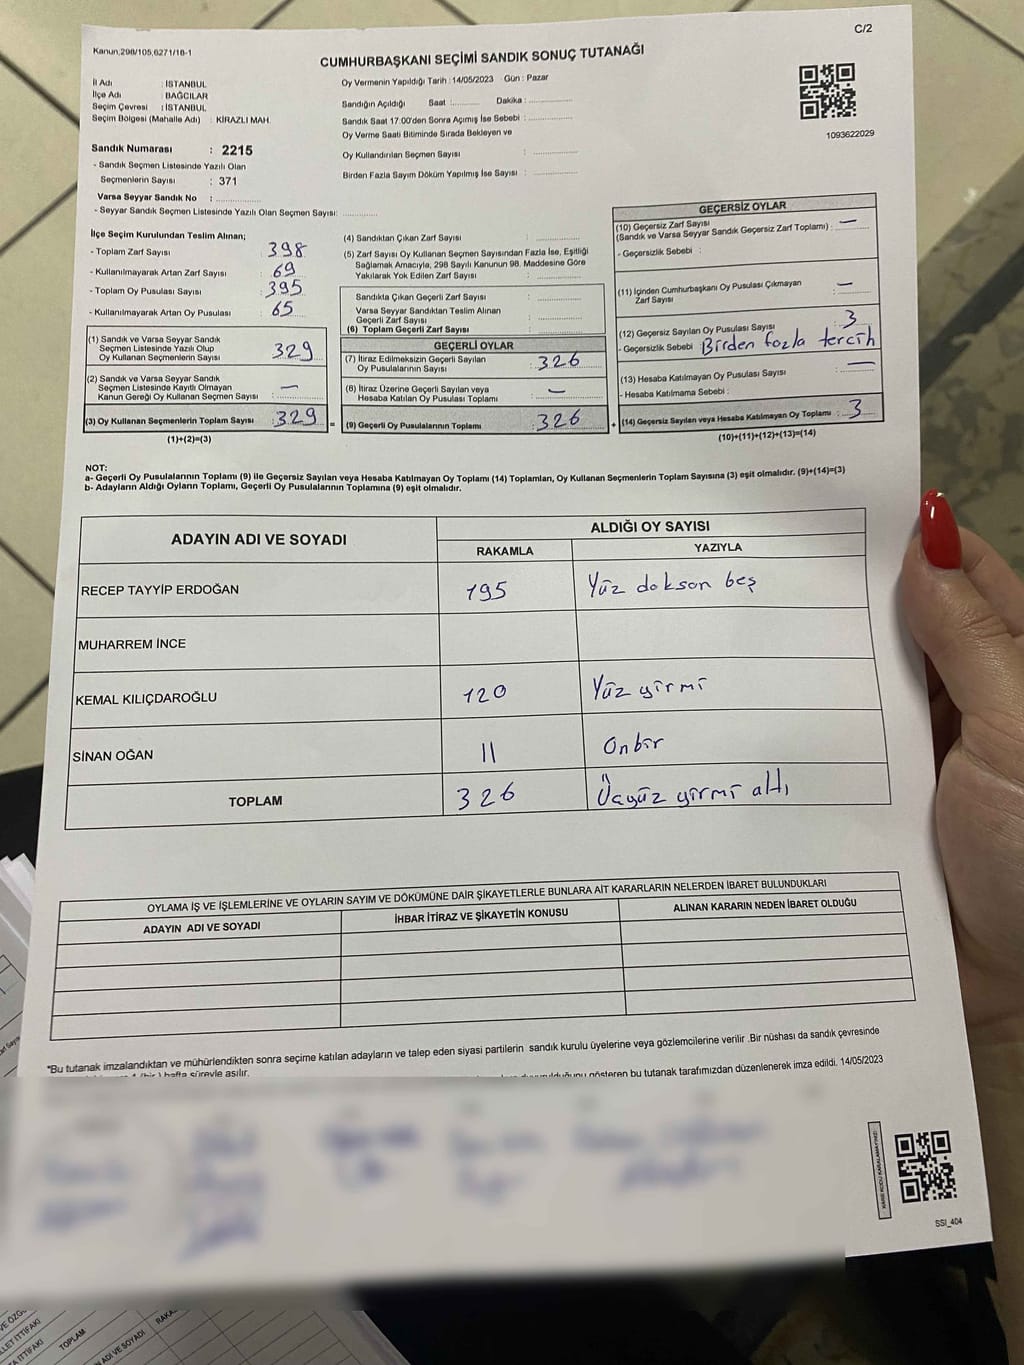 C/2
Kanun,298/105,6271/18-1
CUMHURBAŞKANI SEÇİMİ SANDIK SONUÇ TUTANAĞI
İl Adı : İSTANBUL
İlçe Adı : BAĞCILAR
Seçim Çevresi : İSTANBUL
Seçim Bölgesi (Mahalle Adı) : KİRAZLI MAH.
Sandık Numarası : 2215
- Sandık Seçmen Listesinde Yazılı Olan
Seçmenlerin Sayısı : 371
Varsa Seyyar Sandık No :
- Seyyar Sandık Seçmen Listesinde Yazılı Olan Seçmen Sayısı:
Oy Vermenin Yapıldığı Tarih : 14/05/2023 Gün : Pazar
Sandığın Açıldığı Saat : Dakika :
Sandık Saat 17:00'den Sonra Açımış İse Sebebi :
Oy Verme Saati Bitiminde Sırada Bekleyen ve
Oy Kullandırılan Seçmen Sayısı :
Birden Fazla Sayım Döküm Yapılmış İse Sayısı :
1093622029
İlçe Seçim Kurulundan Teslim Alınan;
- Toplam Zarf Sayısı : 398
- Kullanılmayarak Artan Zarf Sayısı : 69
- Toplam Oy Pusulası Sayısı : 395
- Kullanılmayarak Artan Oy Pusulası : 65
(1) Sandık ve Varsa Seyyar Sandık
Seçmen Listesinde Yazılı Olup
Oy Kullanan Seçmenlerin Sayısı : 329
(2) Sandık ve Varsa Seyyar Sandık
Seçmen Listesinde Kayıtlı Olmayan
Kanun Gereği Oy Kullanan Seçmen Sayısı : —
(3) Oy Kullanan Seçmenlerin Toplam Sayısı : 329
(1)+(2)=(3)
(4) Sandıktan Çıkan Zarf Sayısı :
(5) Zarf Sayısı Oy Kullanan Seçmen Sayısından Fazla İse, Eşitliği
Sağlamak Amacıyla, 298 Sayılı Kanunun 98. Maddesine Göre
Yakılarak Yok Edilen Zarf Sayısı :
Sandıkta Çıkan Geçerli Zarf Sayısı :
Varsa Seyyar Sandıktan Teslim Alınan
Geçerli Zarf Sayısı :
(6) Toplam Geçerli Zarf Sayısı :
GEÇERLİ OYLAR
(7) İtiraz Edilmeksizin Geçerli Sayılan
Oy Pusulalarının Sayısı : 326
(8) İtiraz Üzerine Geçerli Sayılan veya
Hesaba Katılan Oy Pusulası Toplamı : —
= (9) Geçerli Oy Pusulalarının Toplamı : 326
GEÇERSİZ OYLAR
(10) Geçersiz Zarf Sayısı
(Sandık ve Varsa Seyyar Sandık Geçersiz Zarf Toplamı) : —
- Geçersizlik Sebebi :
(11) İçinden Cumhurbaşkanı Oy Pusulası Çıkmayan
Zarf Sayısı : —
(12) Geçersiz Sayılan Oy Pusulası Sayısı : 3
- Geçersizlik Sebebi : Birden fazla tercih
(13) Hesaba Katılmayan Oy Pusulası Sayısı : —
- Hesaba Katılmama Sebebi :
+ (14) Geçersiz Sayılan veya Hesaba Katılmayan Oy Toplamı : 3
(10)+(11)+(12)+(13)=(14)
NOT:
a- Geçerli Oy Pusulalarının Toplamı (9) ile Geçersiz Sayılan veya Hesaba Katılmayan Oy Toplamı (14) Toplamları, Oy Kullanan Seçmenlerin Toplam Sayısına (3) eşit olmalıdır. (9)+(14)=(3)
b- Adayların Aldığı Oyların Toplamı, Geçerli Oy Pusulalarının Toplamına (9) eşit olmalıdır.
ADAYIN ADI VE SOYADI
ALDIĞI OY SAYISI
RAKAMLA YAZIYLA
RECEP TAYYİP ERDOĞAN 195 Yüz doksan beş
MUHARREM İNCE
KEMAL KILIÇDAROĞLU 120 Yüz yirmi
SİNAN OĞAN 11 Onbir
TOPLAM 326 Üçyüz yirmi altı
OYLAMA İŞ VE İŞLEMLERİNE VE OYLARIN SAYIM VE DÖKÜMÜNE DAİR ŞİKAYETLERLE BUNLARA AİT KARARLARIN NELERDEN İBARET BULUNDUKLARI
ADAYIN ADI VE SOYADI İHBAR İTİRAZ VE ŞİKAYETİN KONUSU ALINAN KARARIN NEDEN İBARET OLDUĞU
*Bu tutanak imzalandıktan ve mühürlendikten sonra seçime katılan adayların ve talep eden siyasi partilerin sandık kurulu üyelerine veya gözlemcilerine verilir .Bir nüshası da sandık çevresinde
hafta süreyle asılır.
gösteren bu tutanak tarafımızdan düzenlenerek imza edildi. 14/05/2023
SSİ_404
TOPLAM